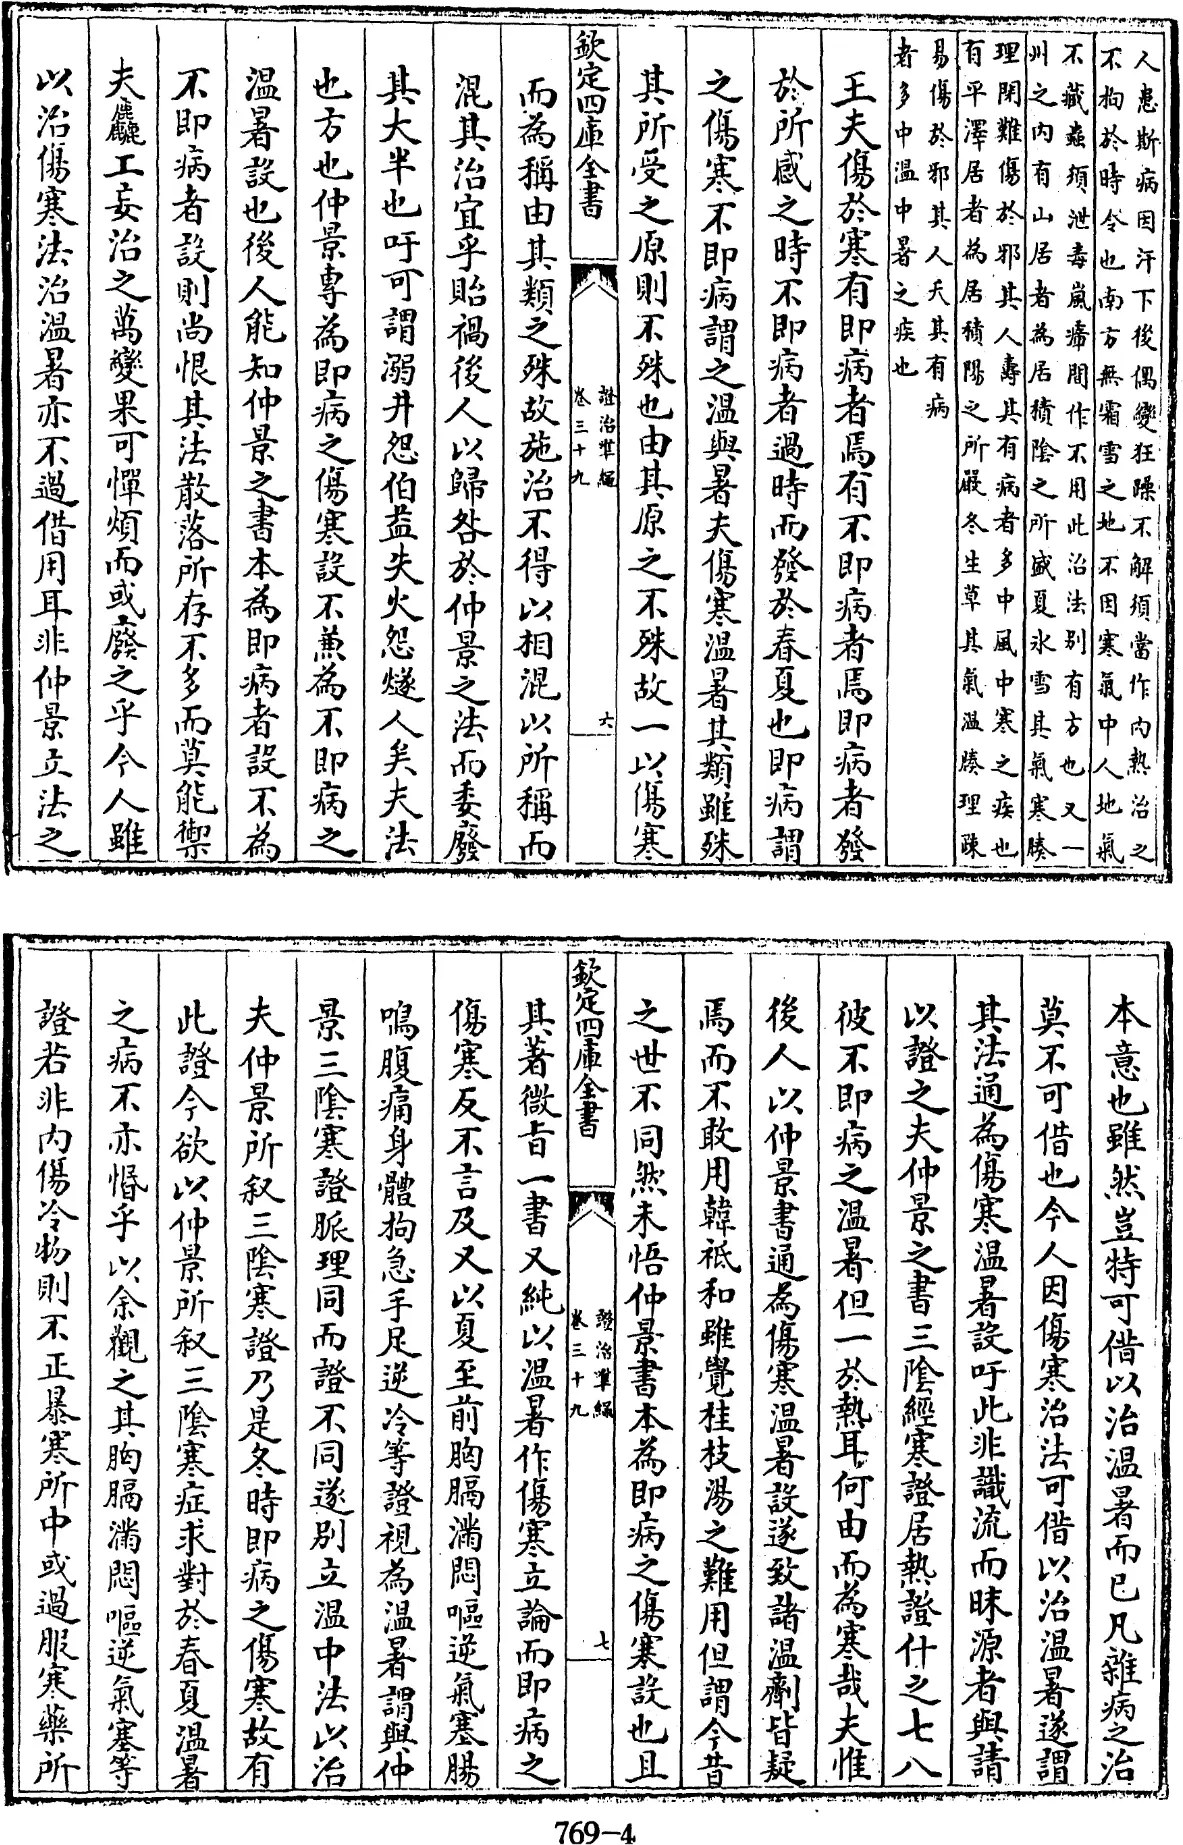 人患斯病因汗下後偶變狂躁不解須當作内熱治之
不拘於時令也南方無霜雪之地不因寒氣中人地氣
不藏蟲須泄毒嵐瘴間作不用此治法别有方也又一
州之内有山居者為居積隂之所盛夏氷雪其氣寒腠
理閉難傷於邪其人壽其有病者多中風中寒之疾也
有平澤居者為居積陽之所嚴冬生草其氣温腠理疎
易傷於邪其人夭其有病
者多中温中暑之疾也
王夫傷於寒有即病者焉有不即病者焉即病者發
於所感之時不即病者過時而發於春夏也即病謂
之傷寒不即病謂之温與暑夫傷寒温暑其類雖殊
其所受之原則不殊也由其原之不殊故一以傷寒
欽定四庫全書
證治凖繩
卷三十九
六
而為稱由其類之殊故施治不得以相混以所稱而
混其治宜乎貽禍後人以歸咎於仲景之法而委廢
其大半也吁可謂溺井怨伯益失火怨燧人矣夫法
也方也仲景專為即病之傷寒設不兼為不即病之
温暑設也後人能知仲景之書本為即病者設不為
不即病者設則尚恨其法散落所存不多而莫能禦
夫麤工妄治之萬變果可憚煩而或廢之乎今人雖
以治傷寒法治温暑亦不過借用耳非仲景立法之
本意也雖然豈特可借以治温暑而已凡雜病之治
莫不可借也今人因傷寒治法可借以治温暑遂謂
其法通為傷寒温暑設吁此非識流而昧源者與請
以證之夫仲景之書三隂經寒證居熱證什之七八
彼不即病之温暑但一於熱耳何由而為寒哉夫惟
後人以仲景書通為傷寒温暑設遂致諸温劑皆疑
焉而不敢用韓祗和雖覺桂枝湯之難用但謂今昔
之世不同然未悟仲景書本為即病之傷寒設也且
欽定四庫全書
證治凖繩
卷三十九
七
其著微㫖一書又純以温暑作傷寒立論而即病之
傷寒反不言及又以夏至前胸膈滿悶嘔逆氣塞腸
鳴腹痛身體拘急手足逆冷等證視為温暑謂與仲
景三隂寒證脈理同而證不同遂别立温中法以治
夫仲景所叙三隂寒證乃是冬時即病之傷寒故有
此證今欲以仲景所叙三隂寒症求對於春夏温暑
之病不亦惛乎以余觀之其胸膈滿悶嘔逆氣塞等
證若非内傷冷物則不正暴寒所中或過服寒藥所
769-4